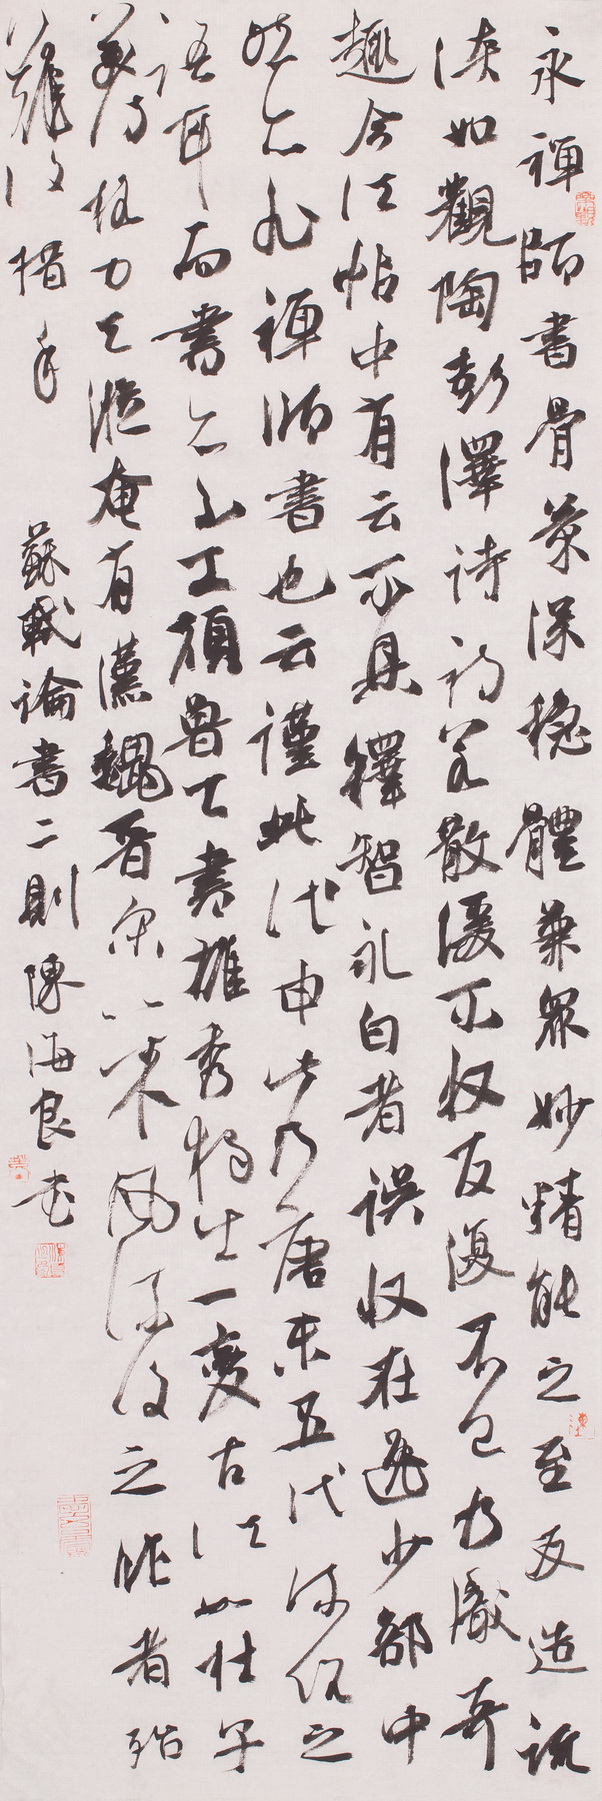 永禪師書骨氣深穩體兼眾妙精能之至反造疏
淡如觀陶彭澤詩初若散緩不收反覆不已乃識奇
趣今法帖中有云不具釋智永白者誤收在逸少部中
然亦非禪師書也云謹此代申此乃唐末五代流俗之
語耳而書亦不工顏魯公書雄秀獨出一變古法如杜子
美詩格力天縱奄有漢魏晉宋以來風流後之作者殆
難復措手
蘇軾論書二則陳海良書